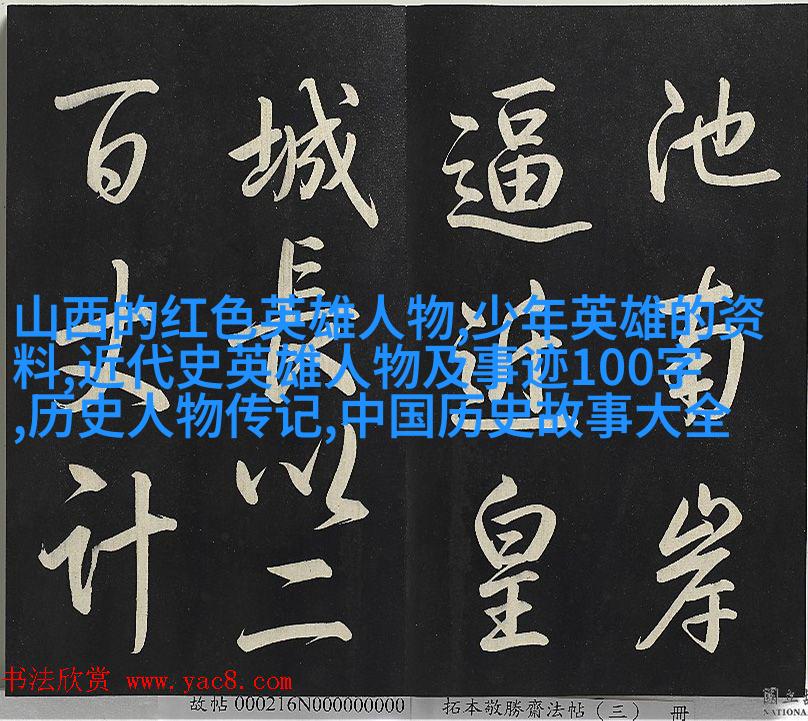 池南岸
逼進皇
城長以二
百丈計
山西的红色英雄人物,少年英雄的资
料,近代史英雄人物及事迹100字
,历史人物传记,中国历史故事大全
书法欣赏 www.yac8.com
故帖 000216N000000000 拓本敬勝齋法帖（三） 冊
國立
NATIONA